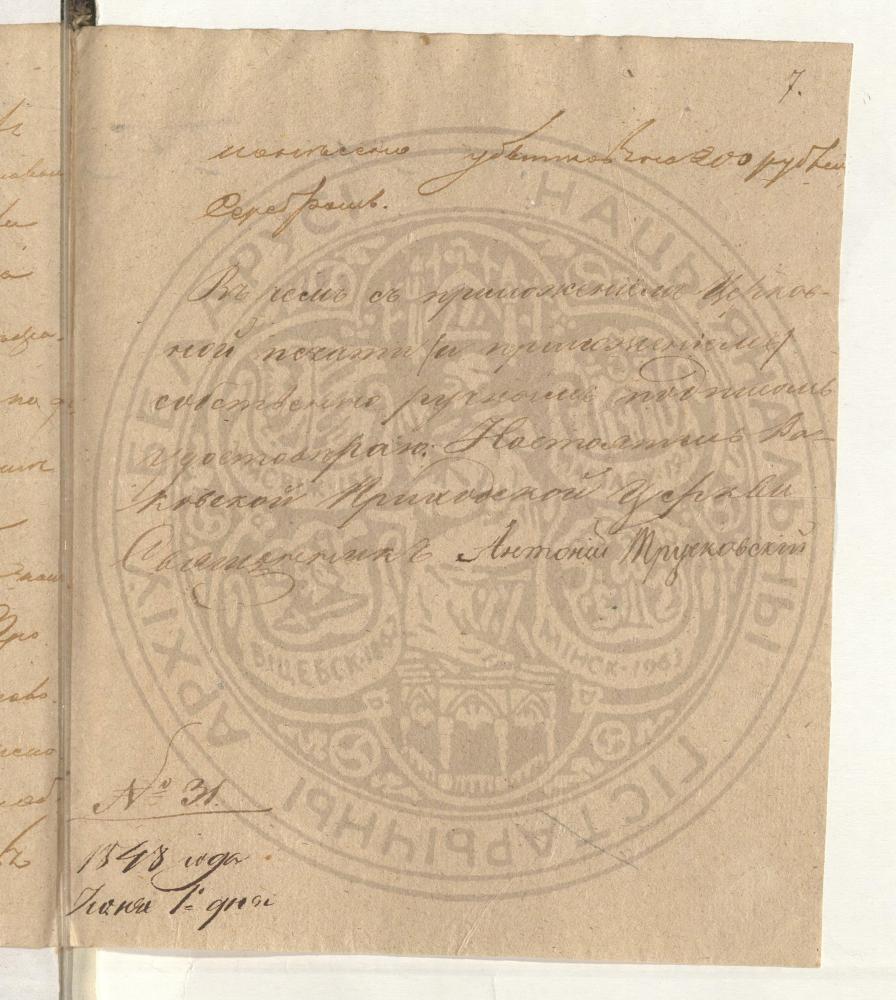 7.
нанесено убытковъ на 200 рублей
Серебромъ.
Въ чемъ съ приложеніемъ Церков-
ной печати (и приложеніемъ)
собственно ручнымъ подписомъ
удостовѣряю: Настоятель
ковской Приходской Церкви
Священникъ Антоній Тручковскій
№ 31.
1848 года
Іюня 1 дня
НАЦЫЯНАЛЬНЫ
ГІСТАРЫЧНЫ
АРХІЎ БЕЛАРУСІ
ВІЦЕБСК-1862
МІНСК-1963